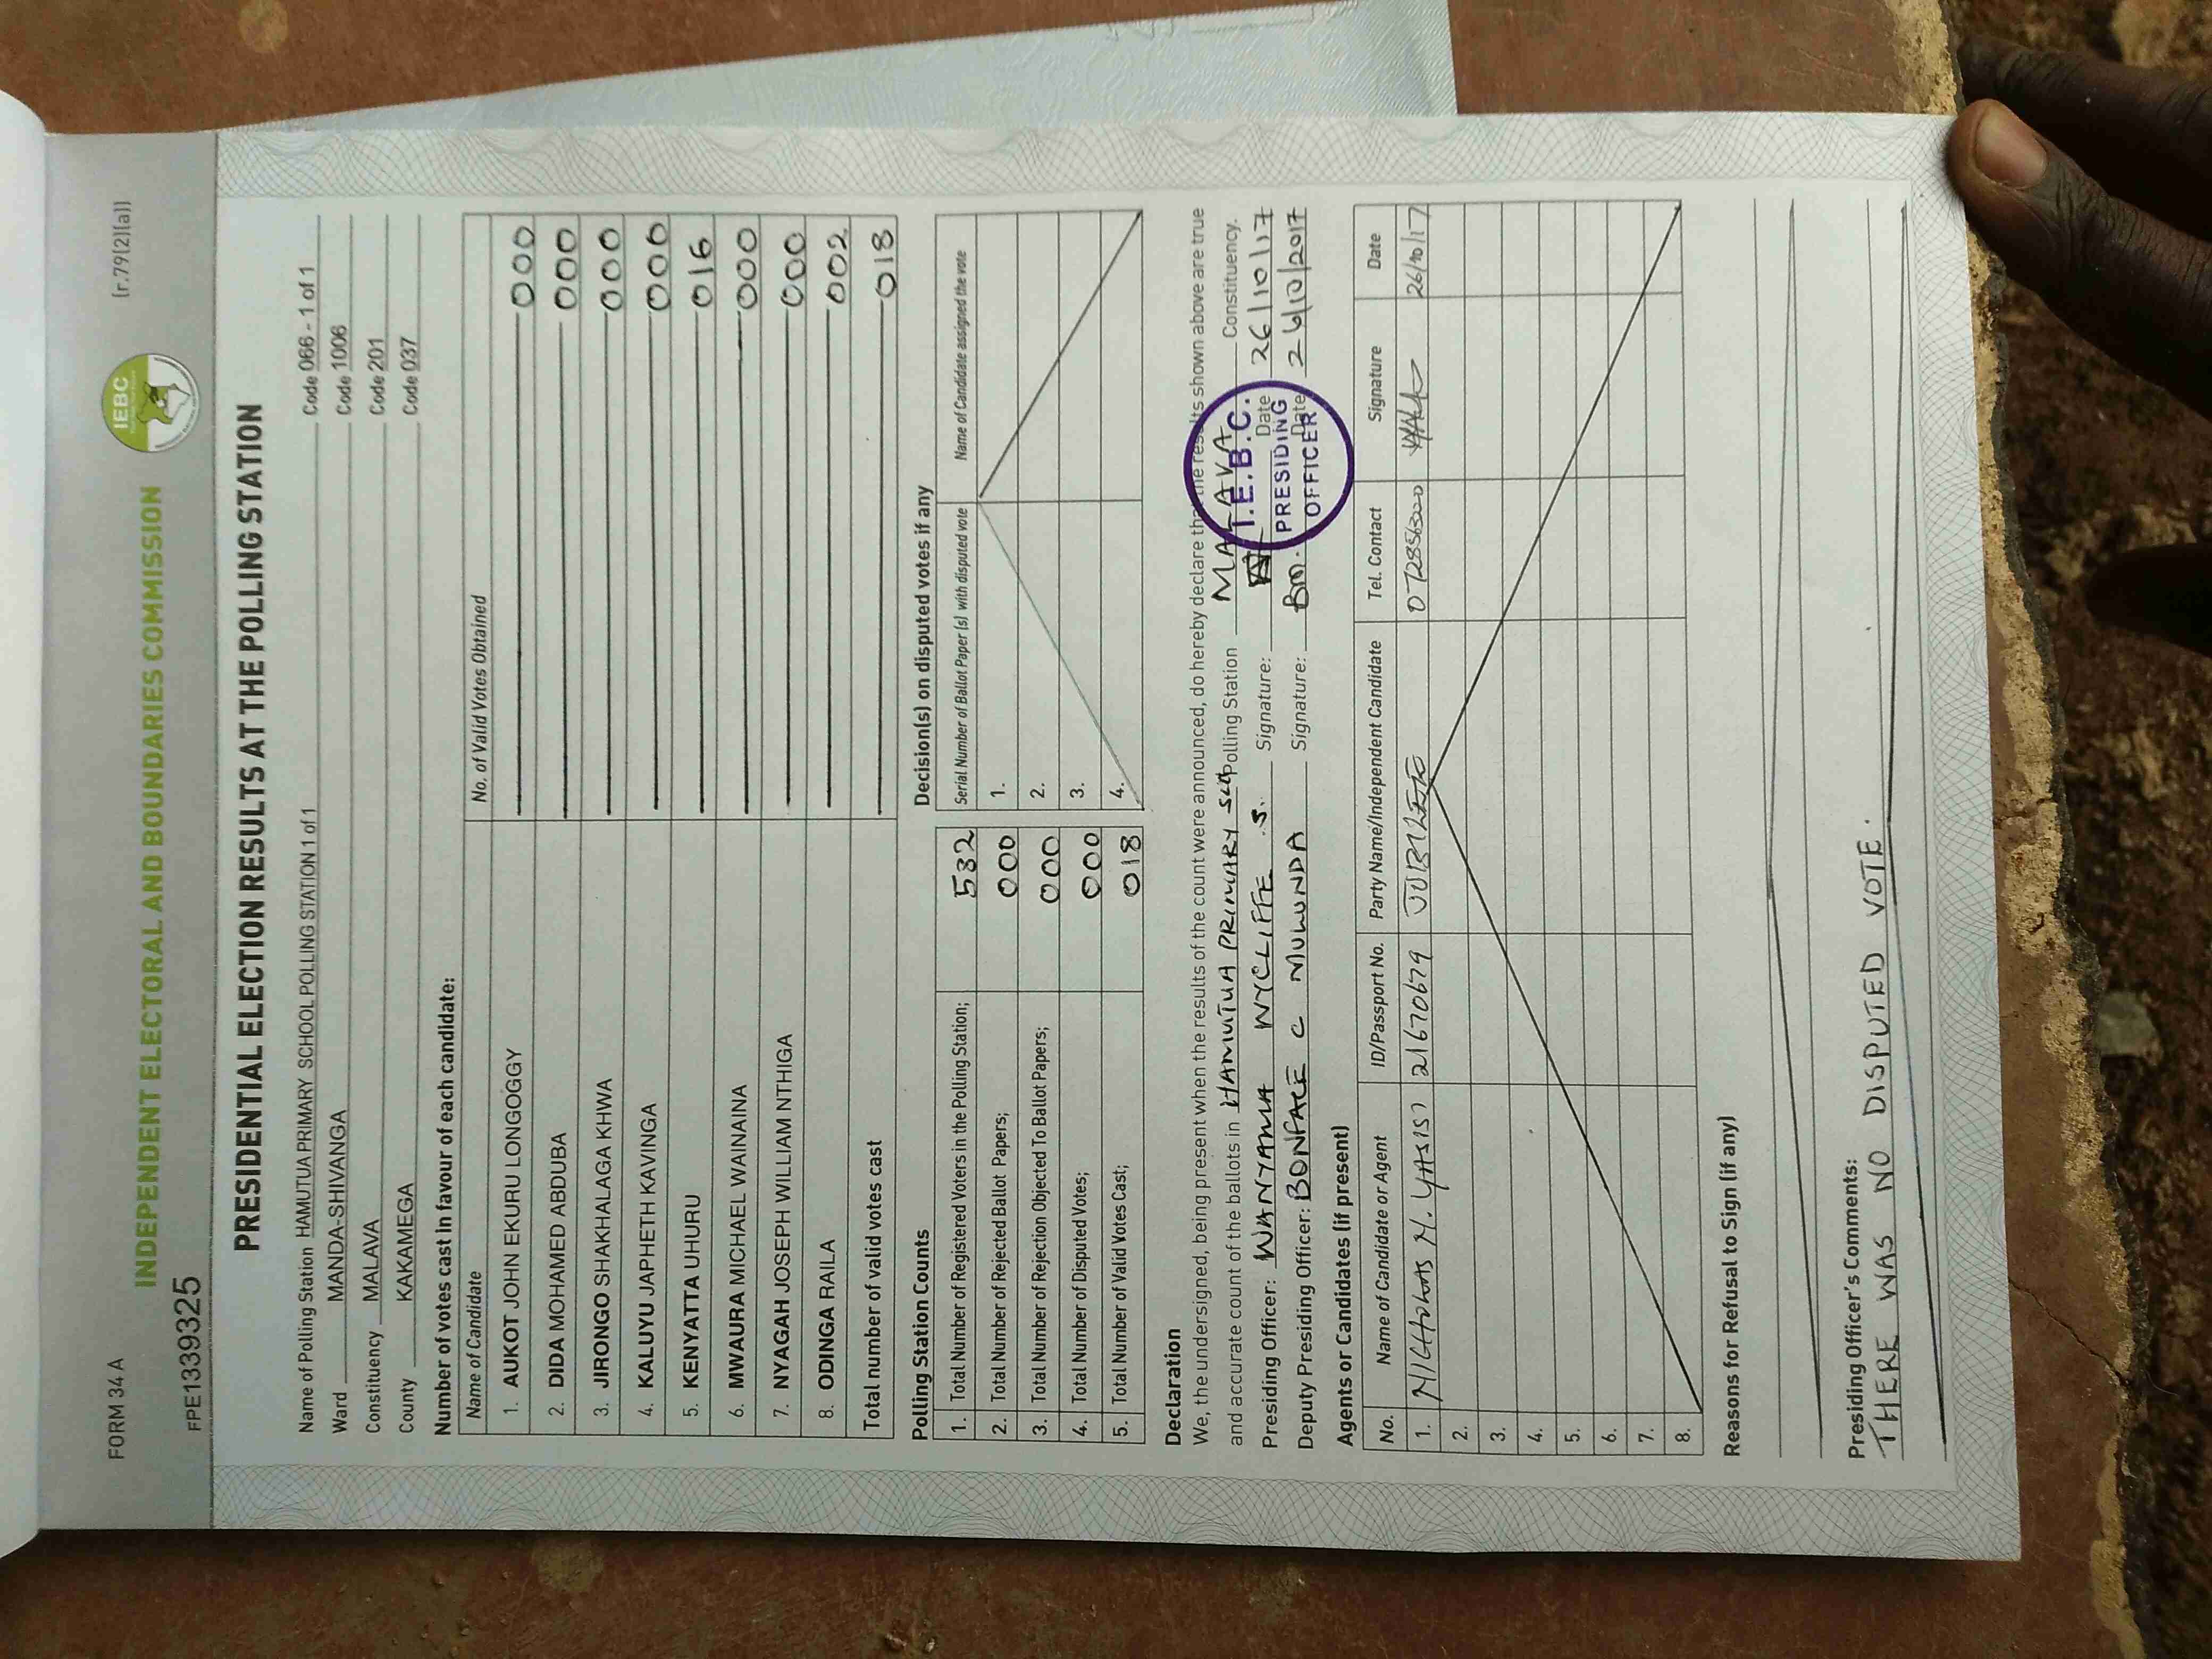 FORM 34 A
(r.79(2)(a))
IEBC
INDEPENDENT ELECTORAL AND BOUNDARIES COMMISSION
FPE1339325
PRESIDENTIAL ELECTION RESULTS AT THE POLLING STATION
Name of Polling Station HAMUTUA PRIMARY SCHOOL POLLING STATION 1 of 1 Code 066 - 1 of 1
Ward MANDA-SHIVANGA Code 1006
Constituency MALAVA Code 201
County KAKAMEGA Code 037
Number of votes cast in favour of each candidate:
Name of Candidate No. of Valid Votes Obtained
1. AUKOT JOHN EKURU LONGOGGY 000
2. DIDA MOHAMED ABDUBA 000
3. JIRONGO SHAKHALAGA KHWA 000
4. KALUYU JAPHETH KAVINGA 000
5. KENYATTA UHURU 016
6. MWAURA MICHAEL WAINAINA 000
7. NYAGAH JOSEPH WILLIAM NTHIGA 000
8. ODINGA RAILA 002
Total number of valid votes cast 018
Polling Station Counts
1. Total Number of Registered Voters in the Polling Station; 532
2. Total Number of Rejected Ballot Papers; 000
3. Total Number of Rejection Objected To Ballot Papers; 000
4. Total Number of Disputed Votes; 000
5. Total Number of Valid Votes Cast; 018
Decision(s) on disputed votes if any
Serial Number of Ballot Paper (s) with disputed vote Name of Candidate assigned the vote
1.
2.
3.
4.
Declaration
We, the undersigned, being present when the results of the count were announced, do hereby declare that the results shown above are true
and accurate count of the ballots in HAMUTUA PRIMARY SCH Polling Station MALAVA Constituency.
Presiding Officer: WANYAMA WYCLIFFE .S. Signature: Date 26/10/17
Deputy Presiding Officer: BONFACE C MULUNDA Signature: Bm. Date 26/10/2017
I.E.B.C.
PRESIDING
OFFICER
Agents or Candidates (if present)
No. Name of Candidate or Agent ID/Passport No. Party Name/Independent Candidate Tel. Contact Signature Date
1. NICHOLAS M. YASISI 21670679 JUBILEE 072856300 26/10/17
2.
3.
4.
5.
6.
7.
8.
Reasons for Refusal to Sign (if any)
Presiding Officer's Comments:
THERE WAS NO DISPUTED VOTE.